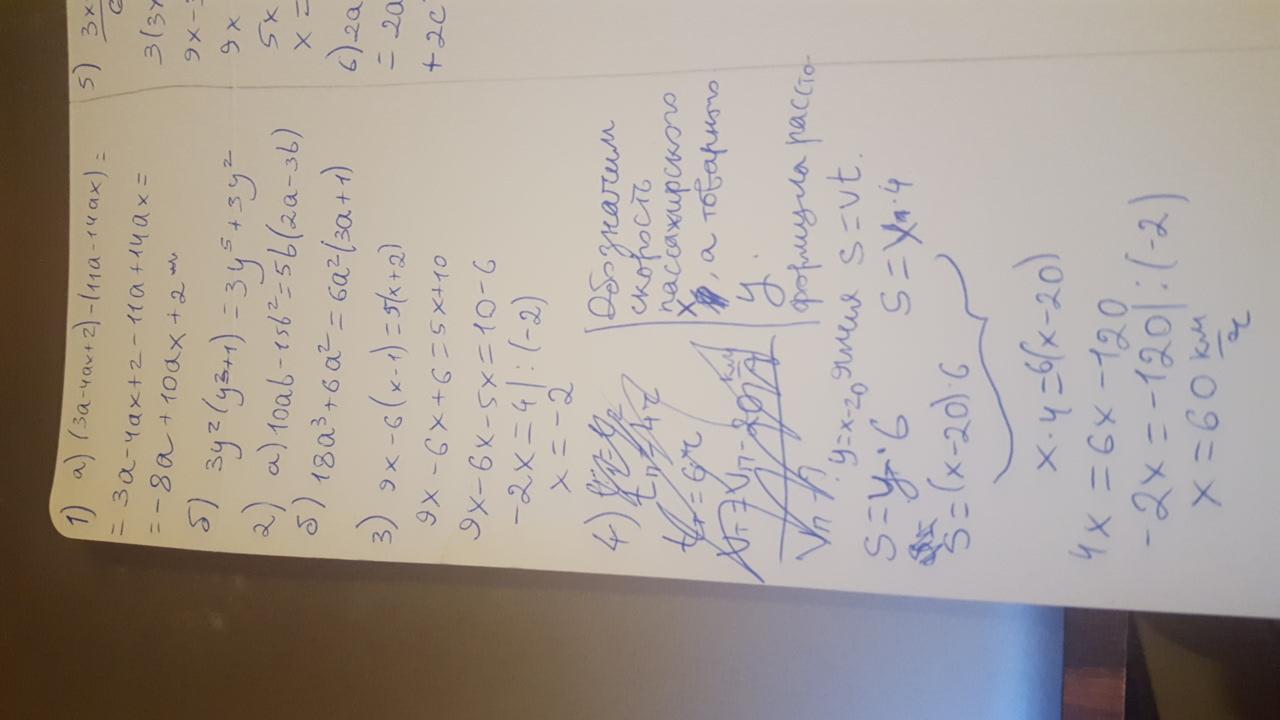 1) а) (3а-4ах+2)-(11а-14ах)=
=3а-4ах+2-11а+14ах=
=-8а+10ах+2
б) 3y²(y³+1)=3y⁵+3y²
2) а) 10ab-15b²=5b(2a-3b)
б) 18a³+6a²=6a²(3a+1)
3) 9x-6(x-1)=5(x+2)
9x-6x+6=5x+10
9x-6x-5x=10-6
-2x=4|:(-2)
x=-2
4)
Обозначим
скорость
пассажирского
x, а товарного
y.
y=x-20
формула рассто-
яния S=vt.
S=y·6
S=x·4
S=(x-20)·6
x·4=6(x-20)
4x=6x-120
-2x=-120|:(-2)
x=60 км/ч
5) 3x
3(3x
9x-
9x
5x
x=
6) 2a
=2a
+2c